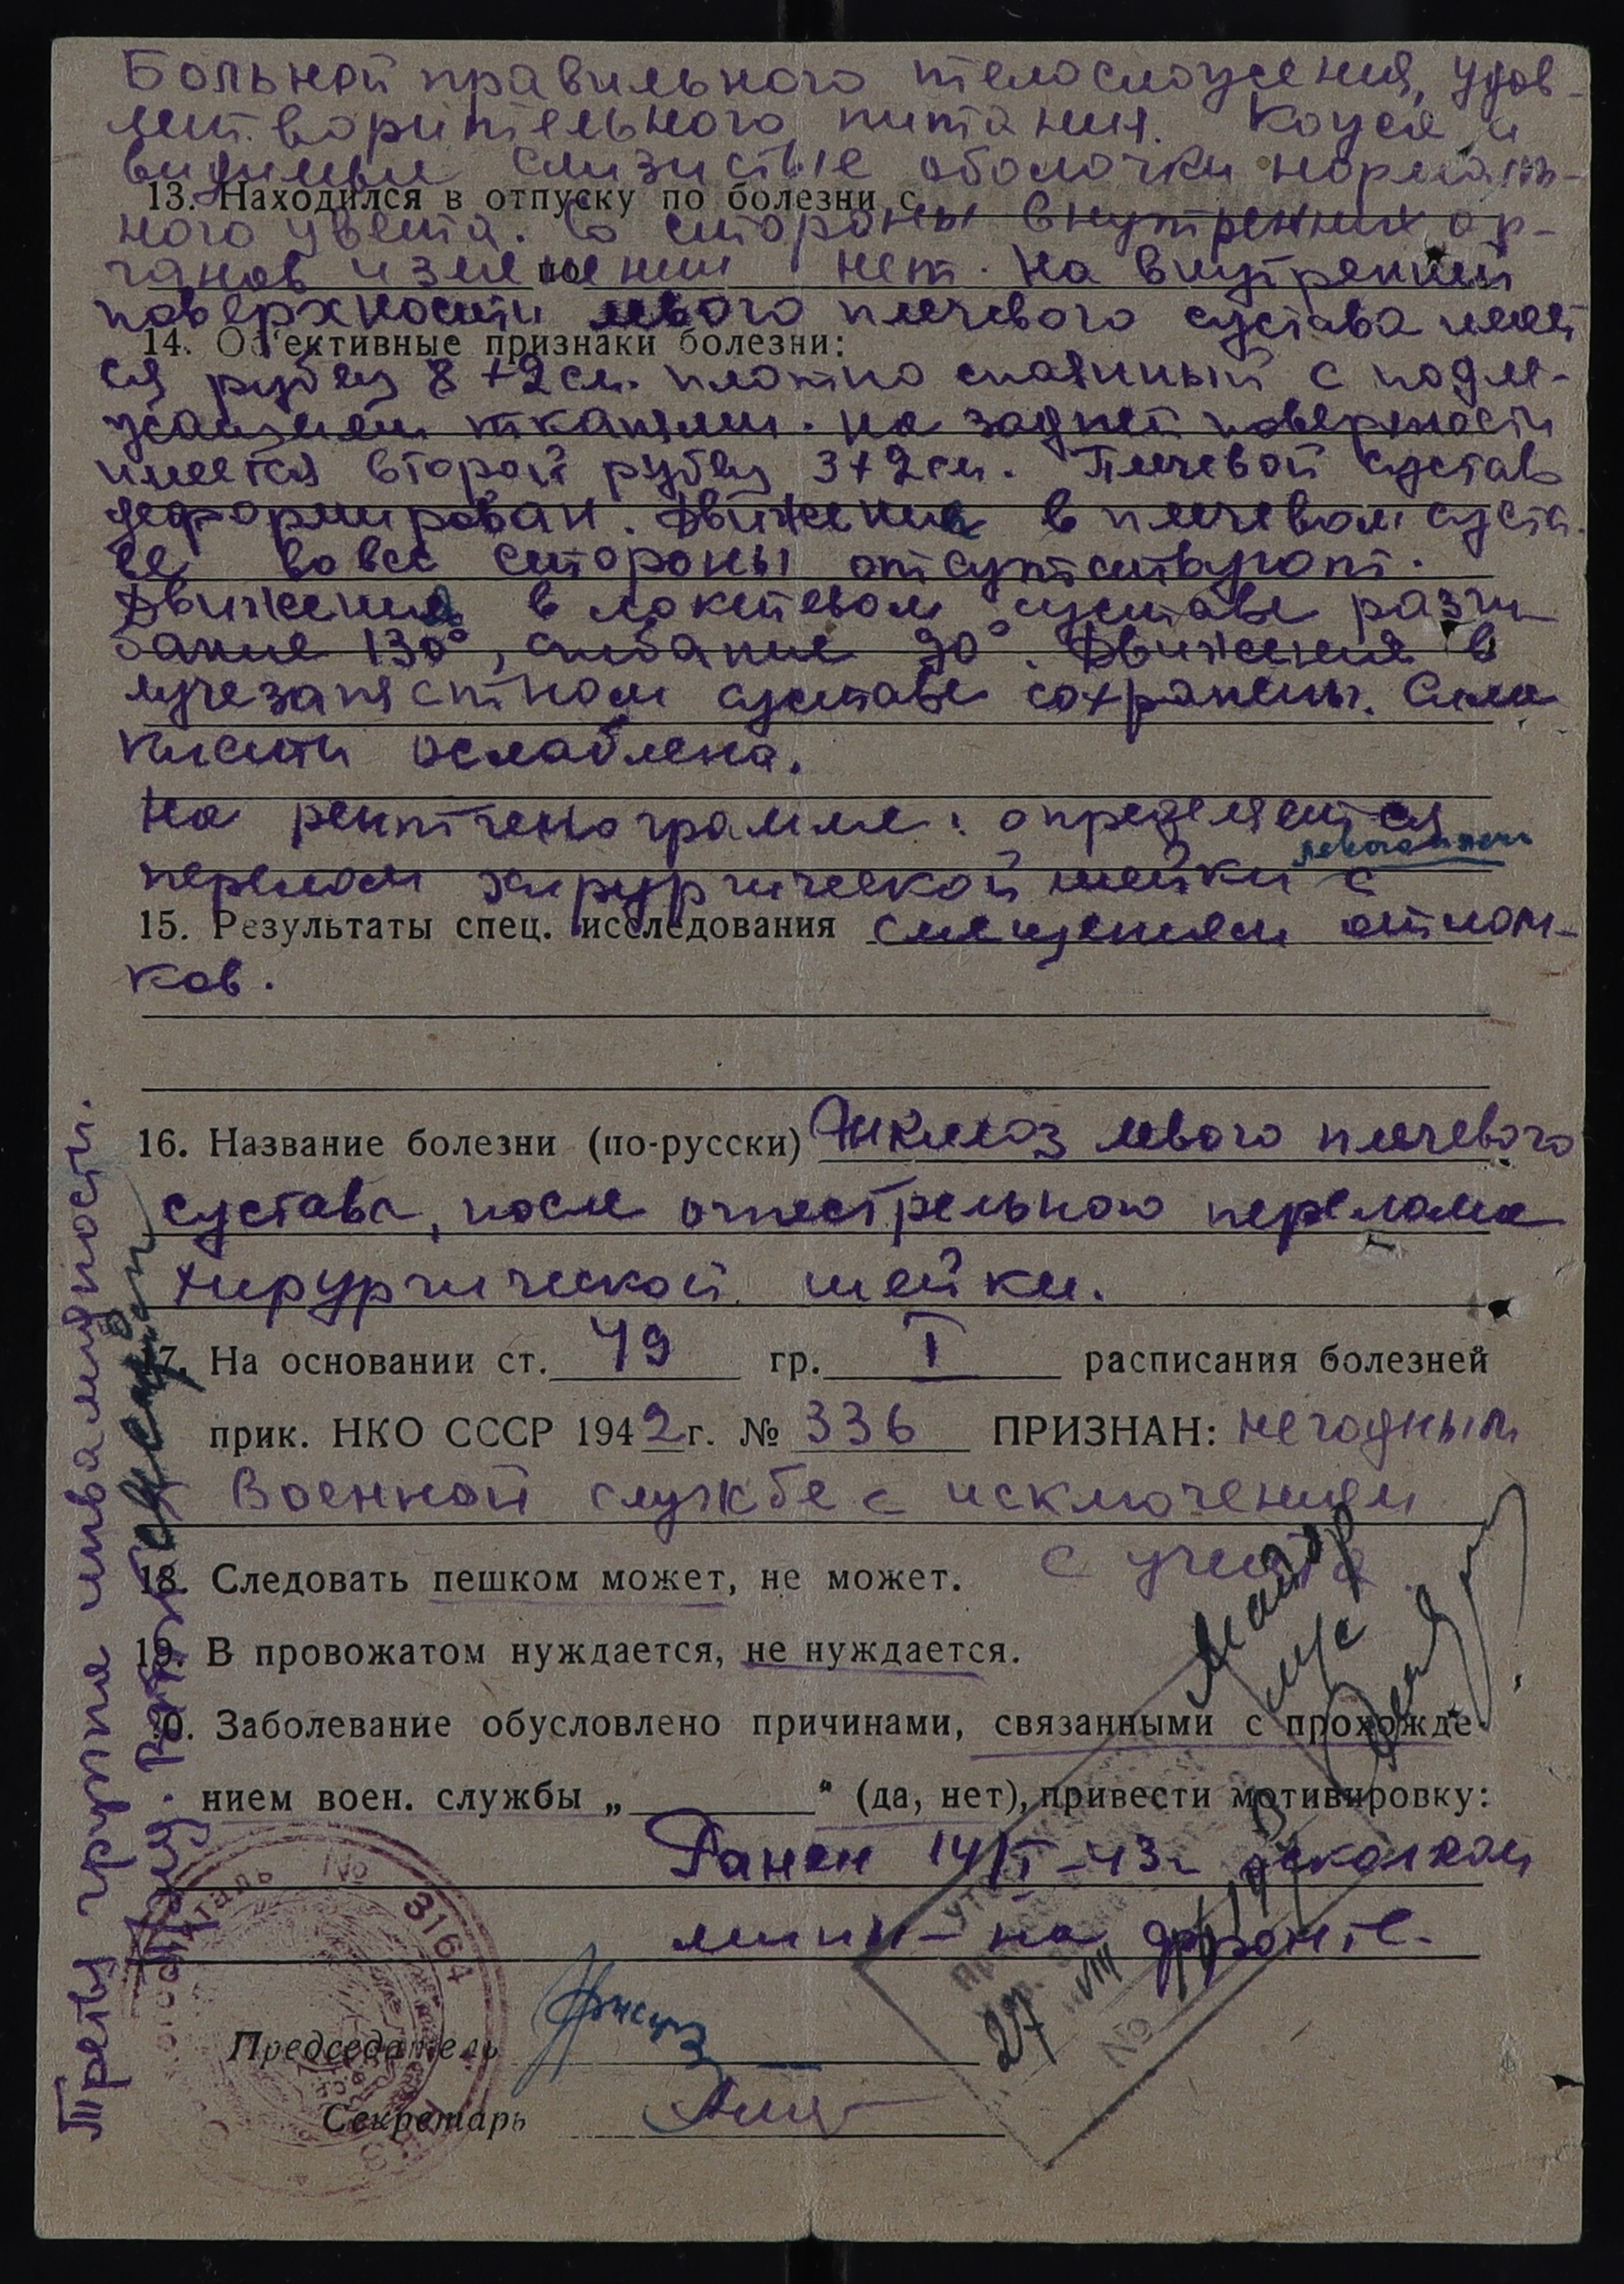 Больной правильного телосложения, удов-
летворительного питания. Кожа и
видимые слизистые оболочки нормаль-
13. Находился в отпуску по болезни с
ного цвета. Со стороны внутренних ор-
по
ганов изменений нет. На внутренней
поверхности левого плечевого сустава имеет
14. Об'ективные признаки болезни:
ся рубец 8+2 см. плотно спаянный с подле-
жащими тканями. На задней поверхности
имеется второй рубец 3+2 см. Плечевой сустав
деформирован. Движения в плечевом суста
ве во все стороны отсутствуют.
Движения в локтевом суставе разги
бание 130°, сгибание 90°. Движения в
лучезапястном суставе сохранены. Сила
кисти ослаблена.
На рентгенограмме: определяется
левого плеча
перелом хирургической шейки с
15. Результаты спец. исследования смещением отлом-
ков.
16. Название болезни (по-русски) Анкилоз левого плечевого
сустава, после огнестрельного перелома
хирургической шейки.
17. На основании ст. 49 гр. I расписания болезней
прик. НКО СССР 1942 г. № 336 ПРИЗНАН: негодным
к военной службе с исключением
с учета
18. Следовать пешком может, не может.
19. В провожатом нуждается, не нуждается.
20. Заболевание обусловлено причинами, связанными с прохожде-
нием воен. службы „ “ (да, нет), привести мотивировку:
Ранен 14/I-43г осколком
мины - на фронте.
Председатель
Секретарь
Третья группа инвалидности.
майор
м/с
27 VIII
№
№ 3164